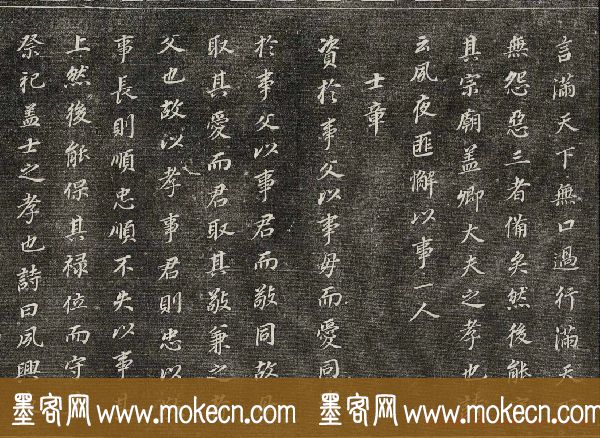 言滿天下無口過行滿天
無怨惡三者備矣然後能
其宗廟盖卿大夫之孝也
云夙夜匪懈以事一人
士章
資於事父以事母而愛同
於事父以事君而敬同故
取其愛而君取其敬兼之
父也故以孝事君則忠以
事長則順忠順不失以事
上然後能保其禄位而守
祭祀盖士之孝也詩曰夙興
墨客网 www.mokecn.com 墨客网 www.mokecn.com